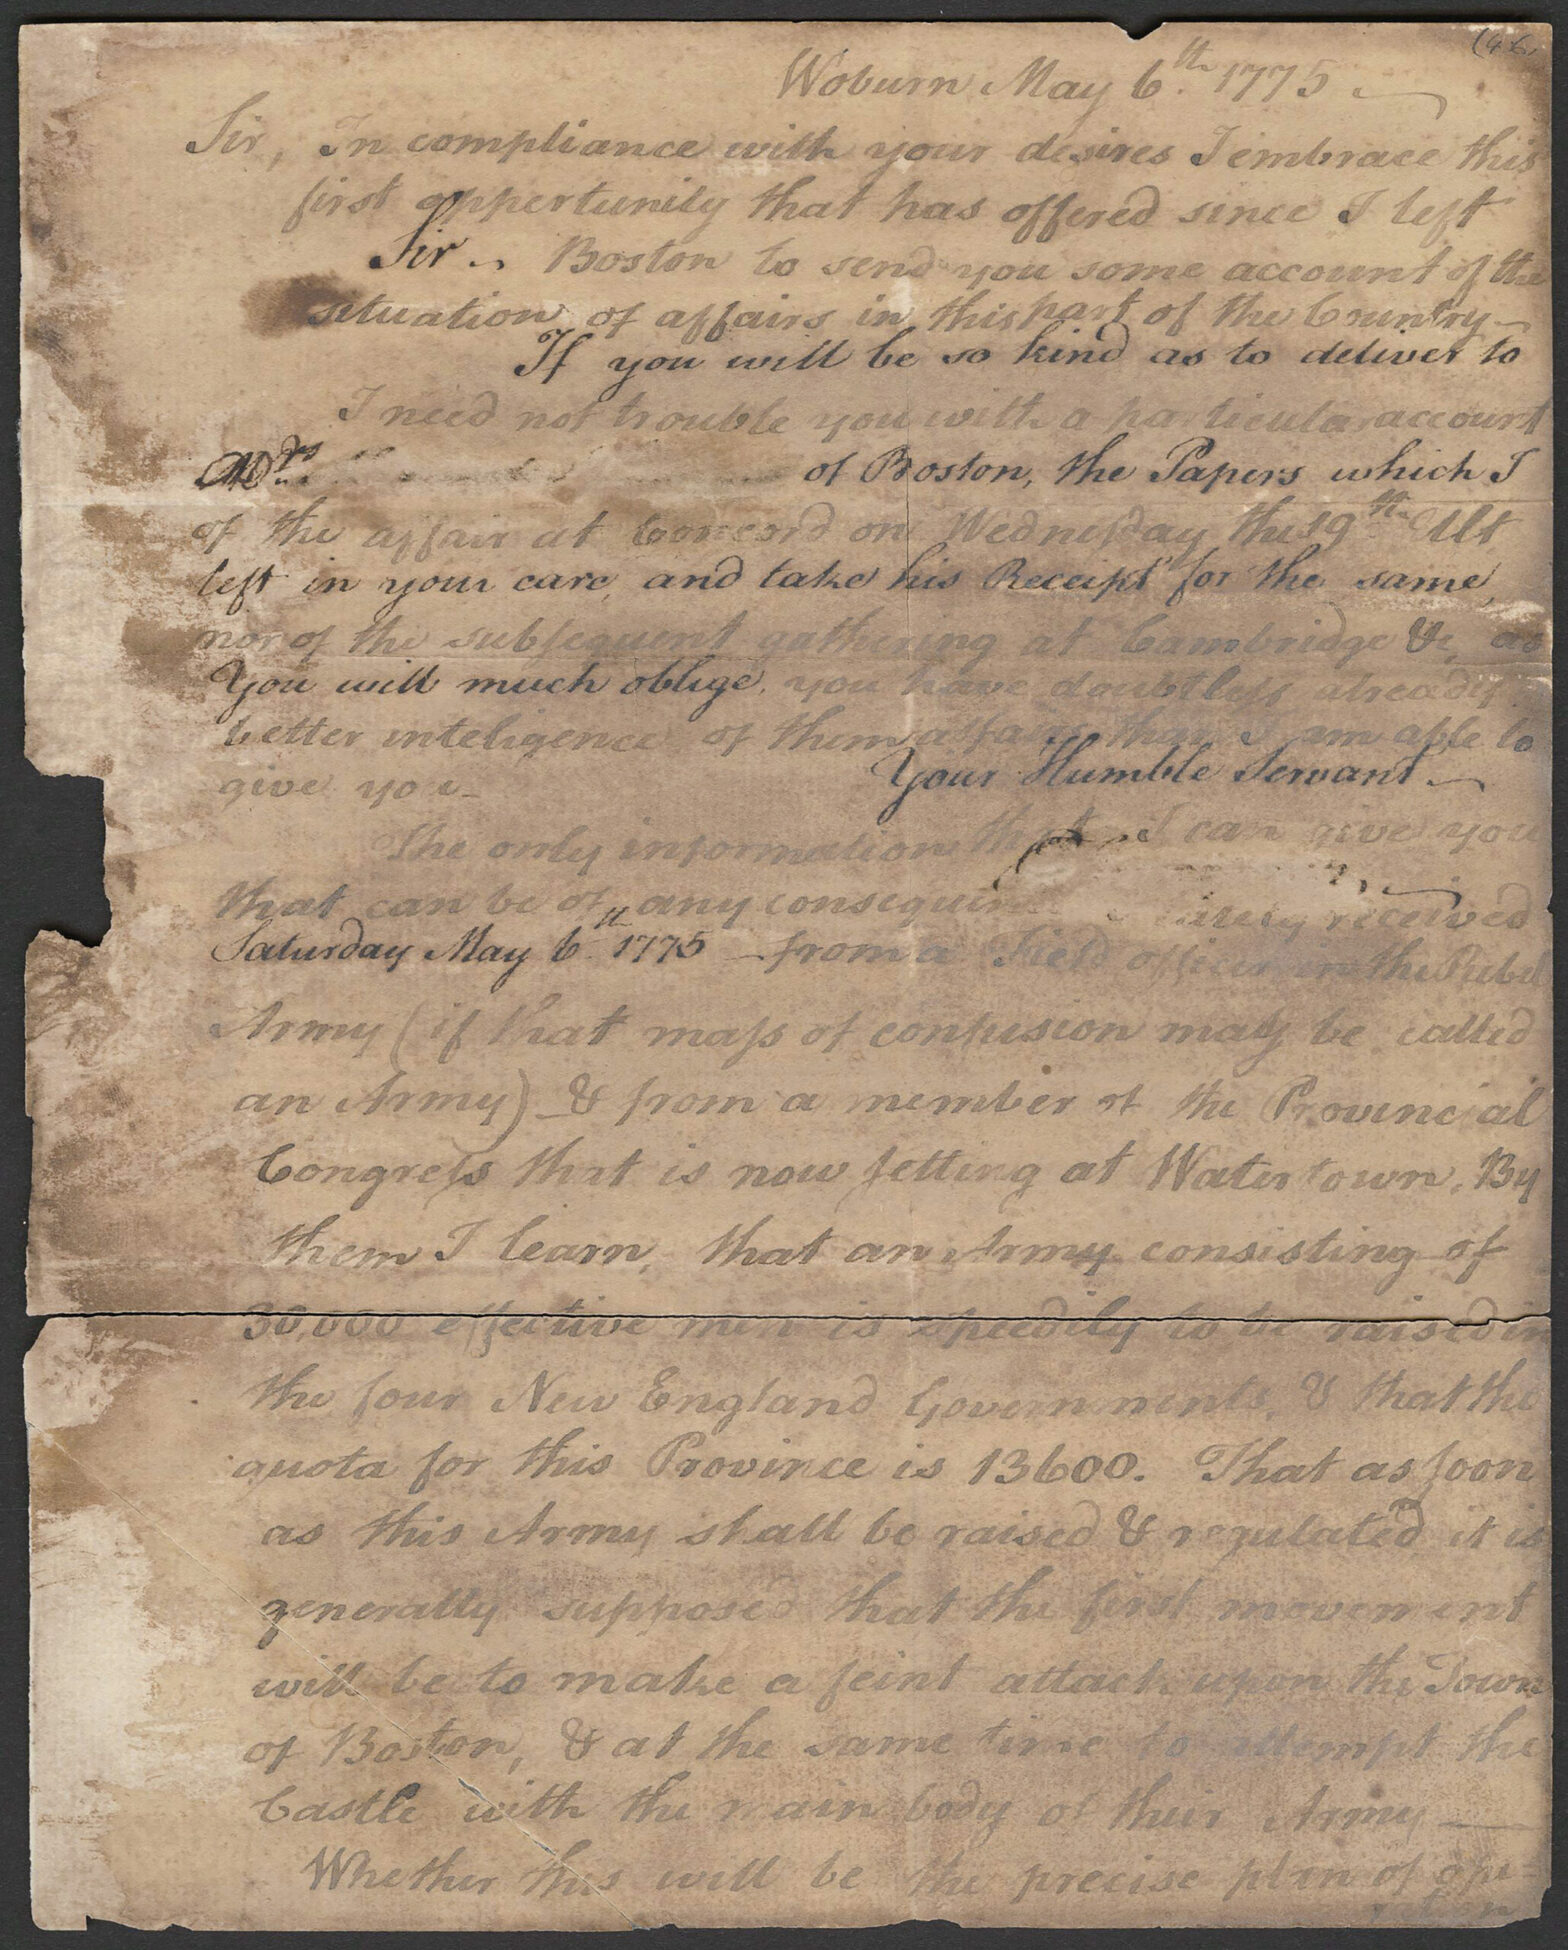 (46)
Woburn May 6th. 1775
Sir, In compliance with your desires I embrace this
first oppertunity that has offered since I left
Sir Boston to send you some account of the
situation of affairs in this part of the Country
If you will be so kind as to deliver to
I need not trouble you with a particular account
of Boston, the Papers which I
of the affair at Concord on Wednesday the 19th Ult
left in your care, and take his Receipt for the same,
nor of the subsequent gathering at Cambridge &c, as
You will much oblige, you have doubtless already
better inteligence of them affairs than I am able to
Your Humble Servant
give you
The only information that I can give you
that can be of any received
Saturday May 6th. 1775 from a Field officer in the Rebel
Army (if that mass of confusion may be called
an Army) & from a member of the Provincial
Congress that is now setting at Watertown. By
them I learn, that an Army consisting of
30,000 effective men is speedily to be raised in
the four New England Governments, & that the
quota for this Province is 13600. That as soon
as this Army shall be raised & regulated it is
generally supposed that the first movement
will be to make a feint attack upon the Town
of Boston, & at the same time to attempt the
Castle with the main body of their Army
Whether this will be the precise plan of ope-
ration